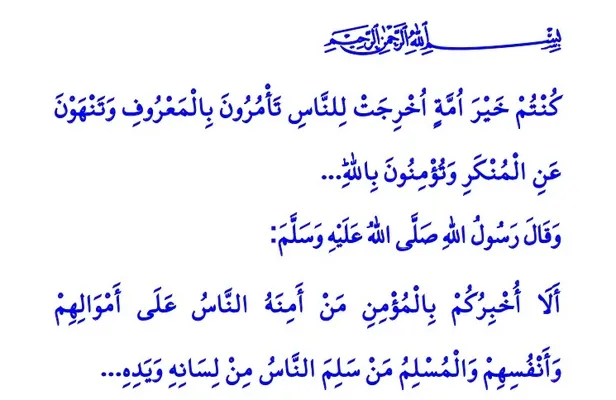 بِسْمِ اللهِ الرَّحْمٰنِ الرَّحِيمِ
كُنْتُمْ خَيْرَ اُمَّةٍ اُخْرِجَتْ لِلنَّاسِ تَأْمُرُونَ بِالْمَعْرُوفِ وَتَنْهَوْنَ
عَنِ الْمُنْكَرِ وَتُؤْمِنُونَ بِاللهِ...
وَقَالَ رَسُولُ اللهِ صَلَّى اللهُ عَلَيْهِ وَسَلَّمَ:
أَلَا أُخْبِرُكُمْ بِالْمُؤْمِنِ مَنْ أَمِنَهُ النَّاسُ عَلَى أَمْوَالِهِمْ
وَأَنْفُسِهِمْ وَالْمُسْلِمُ مَنْ سَلِمَ النَّاسُ مِنْ لِسَانِهِ وَيَدِهِ...